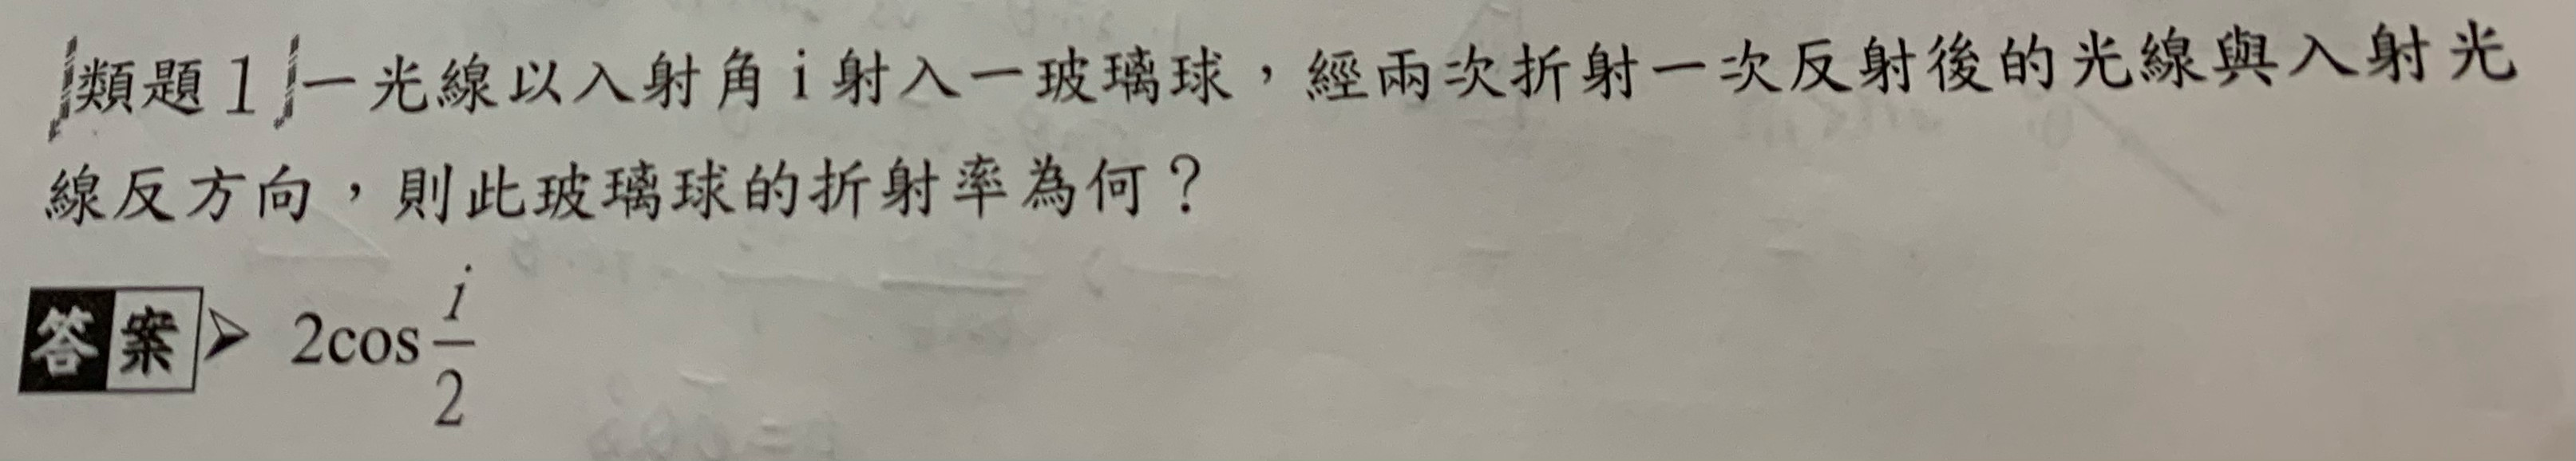 類題1 一光線以入射角 i 射入一玻璃球，經兩次折射一次反射後的光線與入射光
線反方向，則此玻璃球的折射率為何？
答案 2cos i/2